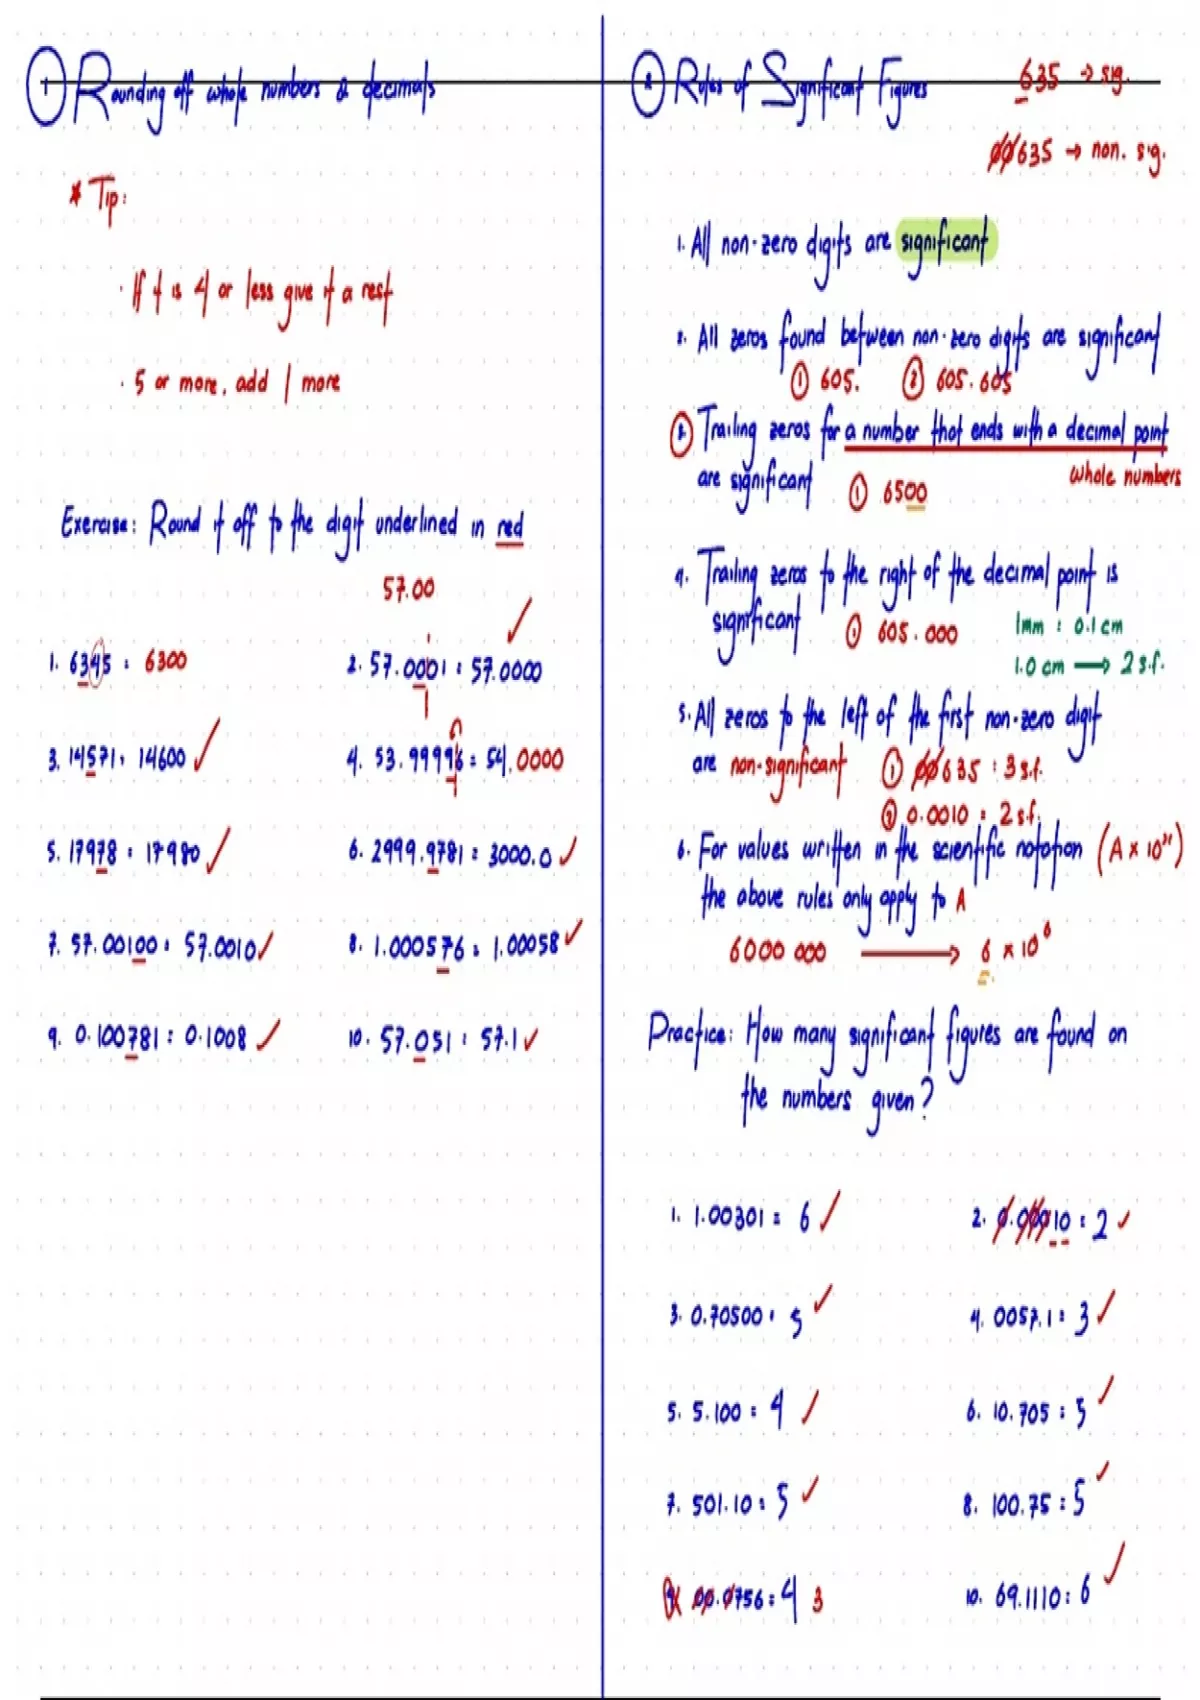 1 Rounding off whole numbers & decimals
* Tip:
· If it is 4 or less give it a rest
· 5 or more, add 1 more
Exercise: Round it off to the digit underlined in red
57.00
1. 6345 = 6300
2. 57.0001 = 57.0000
3. 14571 = 14600
4. 53.99996 = 54.0000
5. 17978 = 17980
6. 2999.9781 = 3000.0
7. 57.00100 = 57.0010
8. 1.000576 = 1.00058
9. 0.100781 = 0.1008
10. 57.051 = 57.1
2 Rules of Significant Figures
635 → sig.
00635 → non. sig.
1. All non-zero digits are significant
2. All zeros found between non-zero digits are significant
1 605. 2 605.605
3 Trailing zeros for a number that ends with a decimal point
are significant 1 6500 whole numbers
4. Trailing zeros to the right of the decimal point is
significant 1 605.000
1mm = 0.1cm
1.0 cm → 2 s.f.
5. All zeros to the left of the first non-zero digit
are non-significant 1 00635 = 3 s.f.
2 0.0010 = 2 s.f.
6. For values written in the scientific notation (A x 10ⁿ)
the above rules only apply to A
6000 000 → 6 x 10⁶
s.f.
Practice: How many significant figures are found on
the numbers given?
1. 1.00301 = 6
2. 0.00010 = 2
3. 0.70500 = 5
4. 0057.1 = 3
5. 5.100 = 4
6. 10.705 = 5
7. 501.10 = 5
8. 100.75 = 5
9. 00.0756 = 4 3
10. 69.1110 = 6